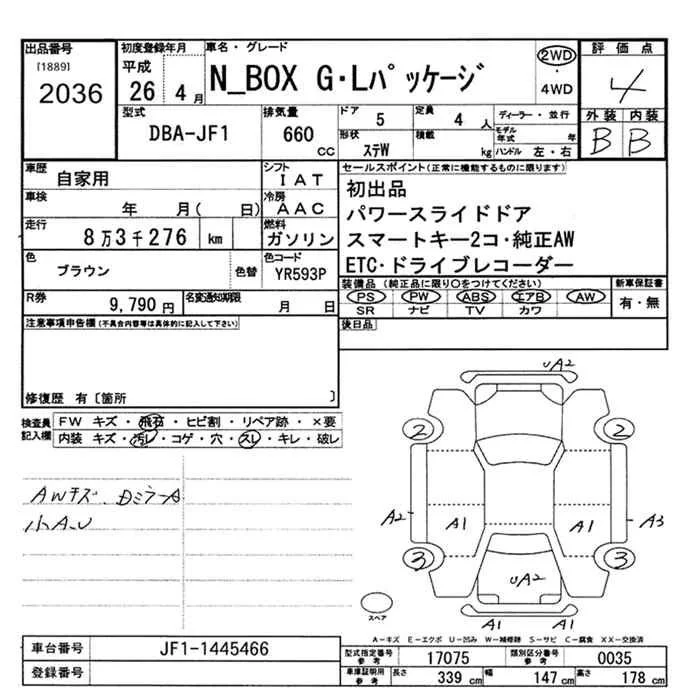 出品番号 初度登録年月 車名・グレード 2WD 評価点
[1889] 平成 N_BOX G・Lパッケージ ・ 4
2036 26 4月 4WD
型式 排気量 ドア 定員 ディーラー・並行 外装 内装
DBA-JF1 660 CC 5 4 人 モデル年式 年 B B
形状 積載
ステW kg ハンドル 左・右
車歴 シフト セールスポイント(正常に機能するものに限ります)
自家用 IAT 初出品
車検 冷房 パワースライドドア
年 月( 日) AAC スマートキー2コ・純正AW
走行 燃料 ETC・ドライブレコーダー
8万3千276 km ガソリン
色 色コード
ブラウン 色替 YR593P
装備品 (純正品に限り○をつけてください) 新車保証書
PS PW ABS エアB AW 有・無
SR ナビ TV カワ
R券 名変通知期限
9,790円 月 日
注意事項申告欄(不具合内容等は具体的に記入して下さい) 後日品
修復歴 有〔箇所 〕
検査員 FW キズ・飛石・ヒビ割・リペア跡・×要
記入欄 内装 キズ・汚レ・コゲ・穴・スレ・キレ・破レ
AWキズ、DミラーA
小A、U
UA2
2 2
A2 A1 A1 A3
3 3
UA2
スペア
A1 A1
A-キズ E-エクボ U-凹み W-補修跡 S-サビ C-腐食 XX-交換済
車台番号 JF1-1445466
登録番号
型式指定番号 参考 17075 類別区分番号 参考 0035
車庫証明用 参考 長さ 339 cm 幅 147 cm 高さ 178 cm